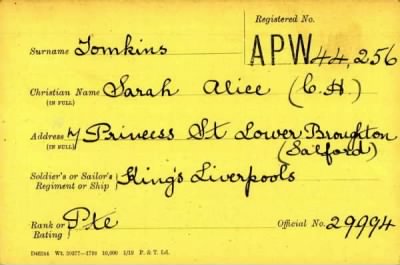 Registered No.
Surname Tomkins
APW 44,256
Christian Name Sarah Alice (C.H.)
(IN FULL)
Address 7 Princess St Lower Broughton
(IN FULL) (Salford)
Soldier's or Sailor's King's Liverpools
Regiment or Ship
Rank or Pte Official No. 29994
Rating
D46244 Wt. 30277—1799 10,000 1/19 P. & T. Ld.